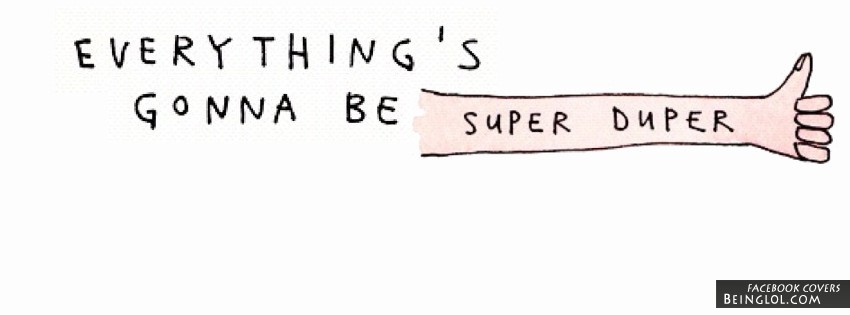 EVERYTHING'S
GONNA BE SUPER DUPER
FACEBOOK COVERS
BEINGLOL.COM